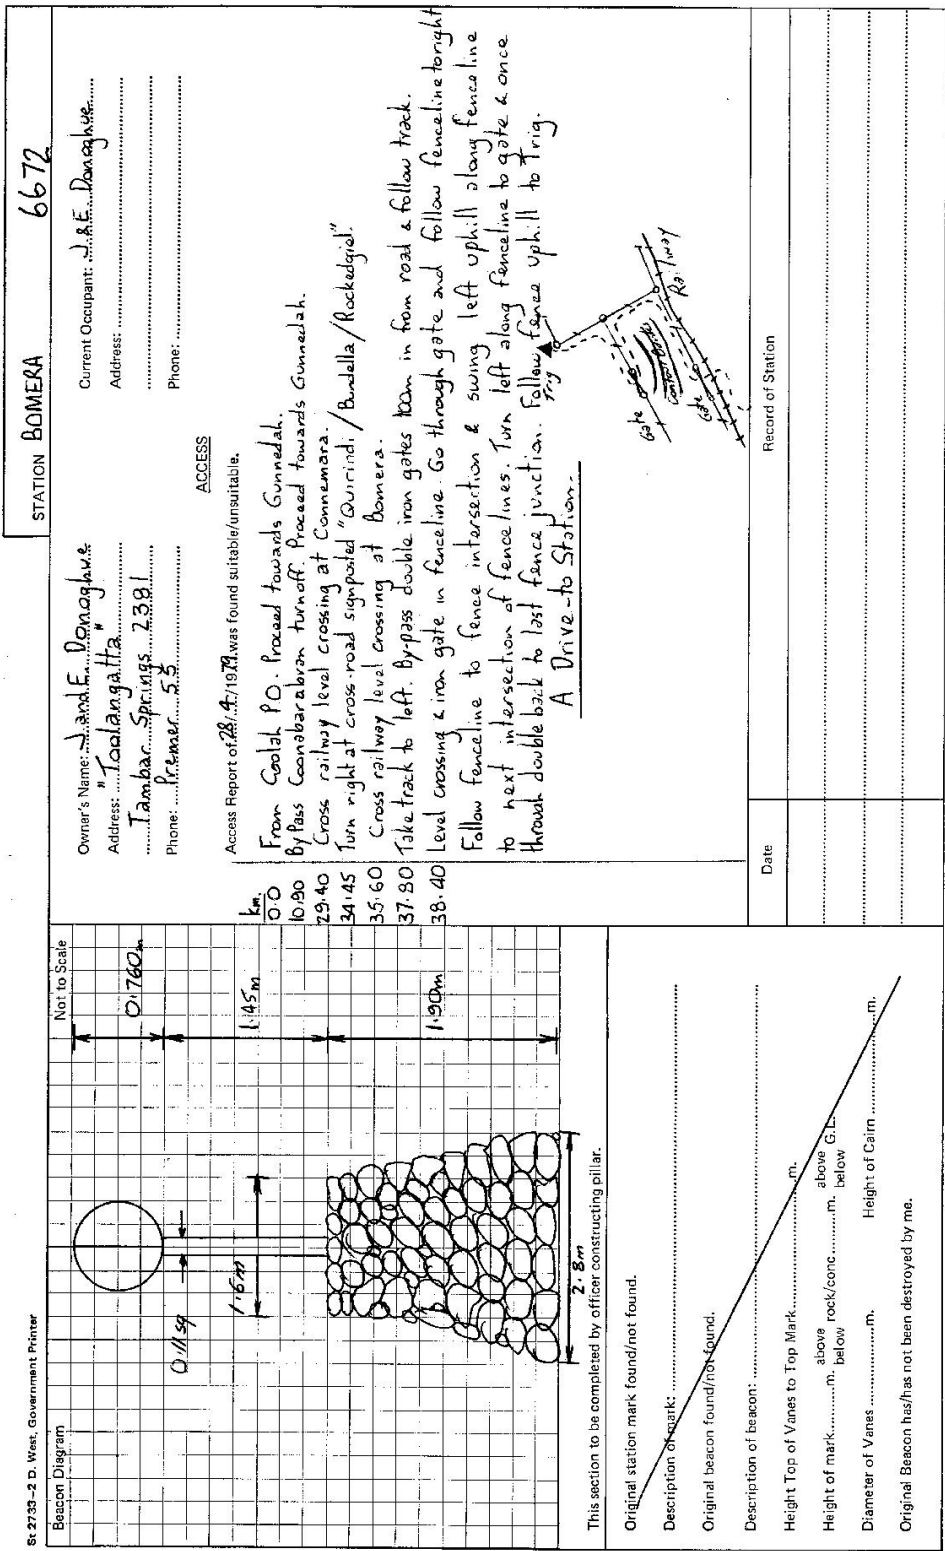 St 2733–2 D. West, Government Printer
Beacon Diagram
Not to Scale
0.760m
1.45m
1.90m
0.11 sq
1.6m
2.8m
This section to be completed by officer constructing pillar.
Original station mark found/not found.
Description of mark:
Original beacon found/not found.
Description of beacon:
Height Top of Vanes to Top Mark m.
Height of mark m. above below rock/conc m. above below G.L.
Diameter of Vanes m. Height of Cairn m.
Original Beacon has/has not been destroyed by me.
STATION BOMERA 6672
Owner's Name: J and E. Donoghue
Address: "Toolangatta"
Tambar Springs 2381
Phone: Premer 55
Current Occupant: J & E. Donoghue
Address:
Phone:
ACCESS
Access Report of 28/4/1979 was found suitable/unsuitable.
km.
0.0 From Coolah P.O. Proceed towards Gunnedah.
10.90 By Pass Coonabarabran turnoff. Proceed towards Gunnedah.
29.40 Cross railway level crossing at Connemara.
34.45 Turn right at cross-road signposted "Quirindi / Bundella / Rockedgiel".
35.60 Cross railway level crossing at Bomera.
37.80 Take track to left. By-pass double iron gates 100m in from road & follow track.
38.40 Level crossing & iron gate in fenceline. Go through gate and follow fenceline to right
Follow fenceline to fence intersection & swing left uphill along fenceline
to next intersection of fencelines. Turn left along fenceline to gate & once
through double back to last fence junction. Follow fence uphill to Trig.
A Drive-to Station.
Trig
Gate
Contour Banks
Gate
Railway
Date
Record of Station